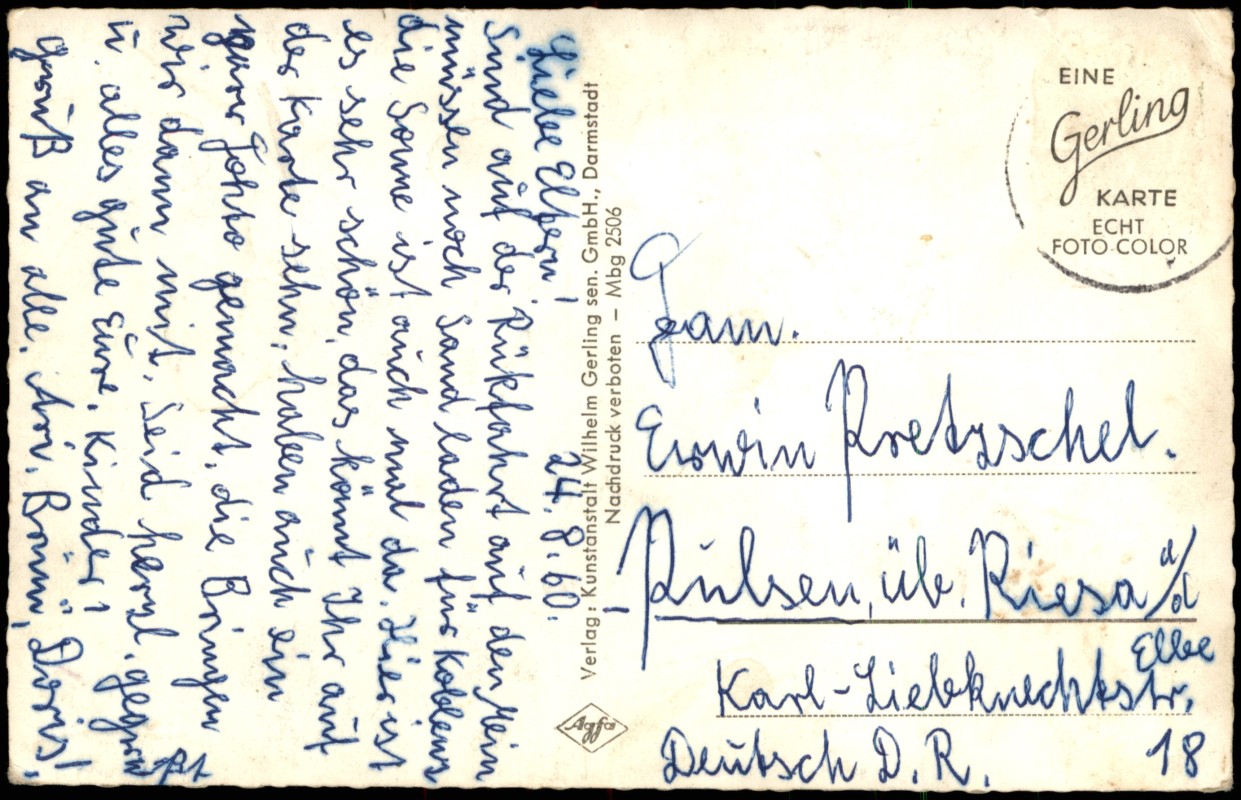 Liebe Eltern! 24.8.60.
Sind auf der Rükfahrt auf den Rein
müssen noch Sand laden für Koblenz
die Sonne ist auch mal da. Hier ist
es sehr schön, das könnt Ihr auf
der Karte sehn, haben auch ein
Fohto gemacht, die Bringen
wir dann mit. Seid herzl. gegrüßt
u. alles gute Eure. Kinder!
gruß an alle. Ari. Doris!
Verlag: Kunstanstalt Wilhelm Gerling sen. GmbH., Darmstadt
Nachdruck verboten – Mbg 2506
Agfa
EINE
Gerling
KARTE
ECHT
FOTO-COLOR
Fam.
Erwin Pretzschel.
Pulsen, üb. Riesa a/d
Elbe
Karl-Liebknechtstr.
18
Deutsch D. R.